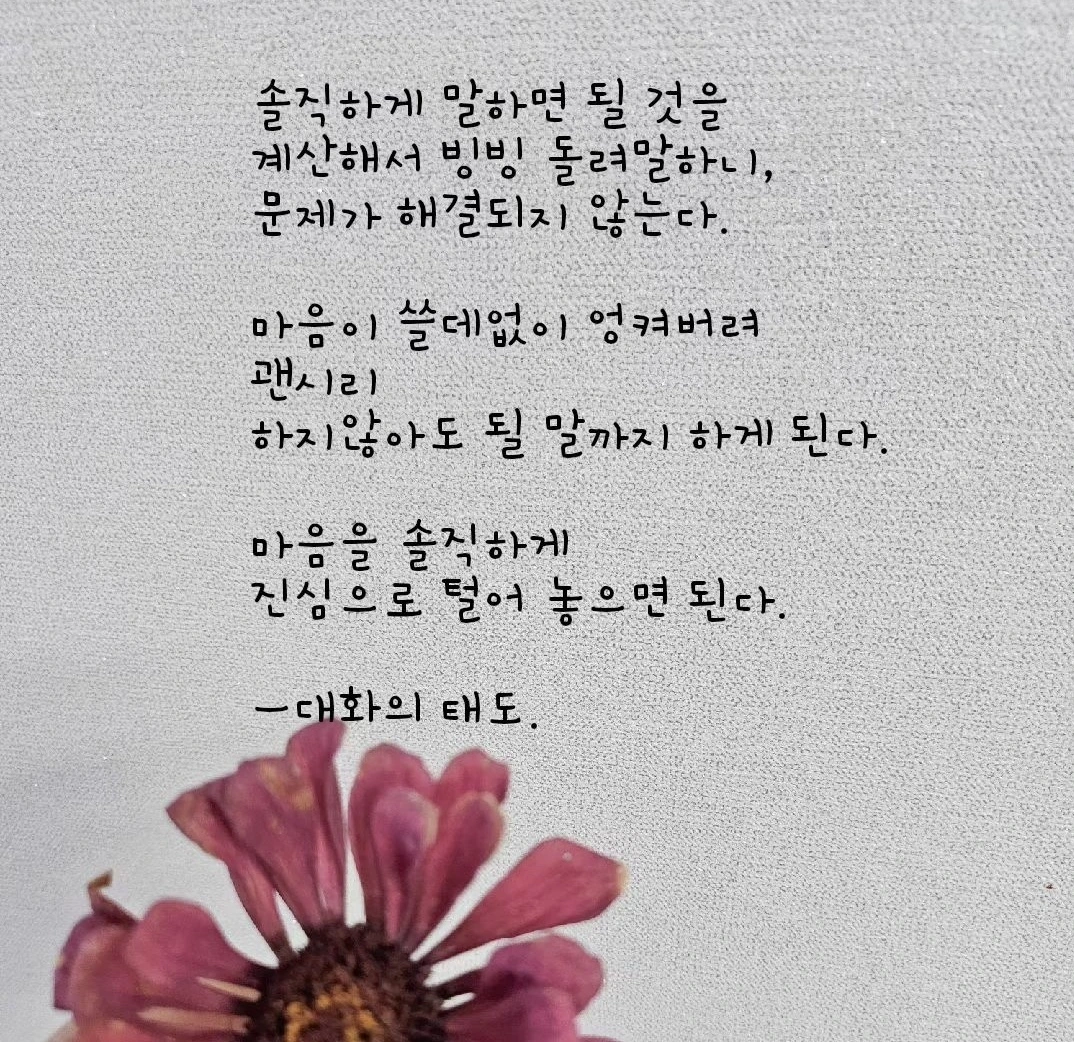 솔직하게 말하면 될 것을
계산해서 빙빙 돌려말하니,
문제가 해결되지 않는다.
마음이 쓸데없이 엉켜버려
괜시리
하지않아도 될 말까지 하게 된다.
마음을 솔직하게
진심으로 털어 놓으면 된다.
-대화의 태도.